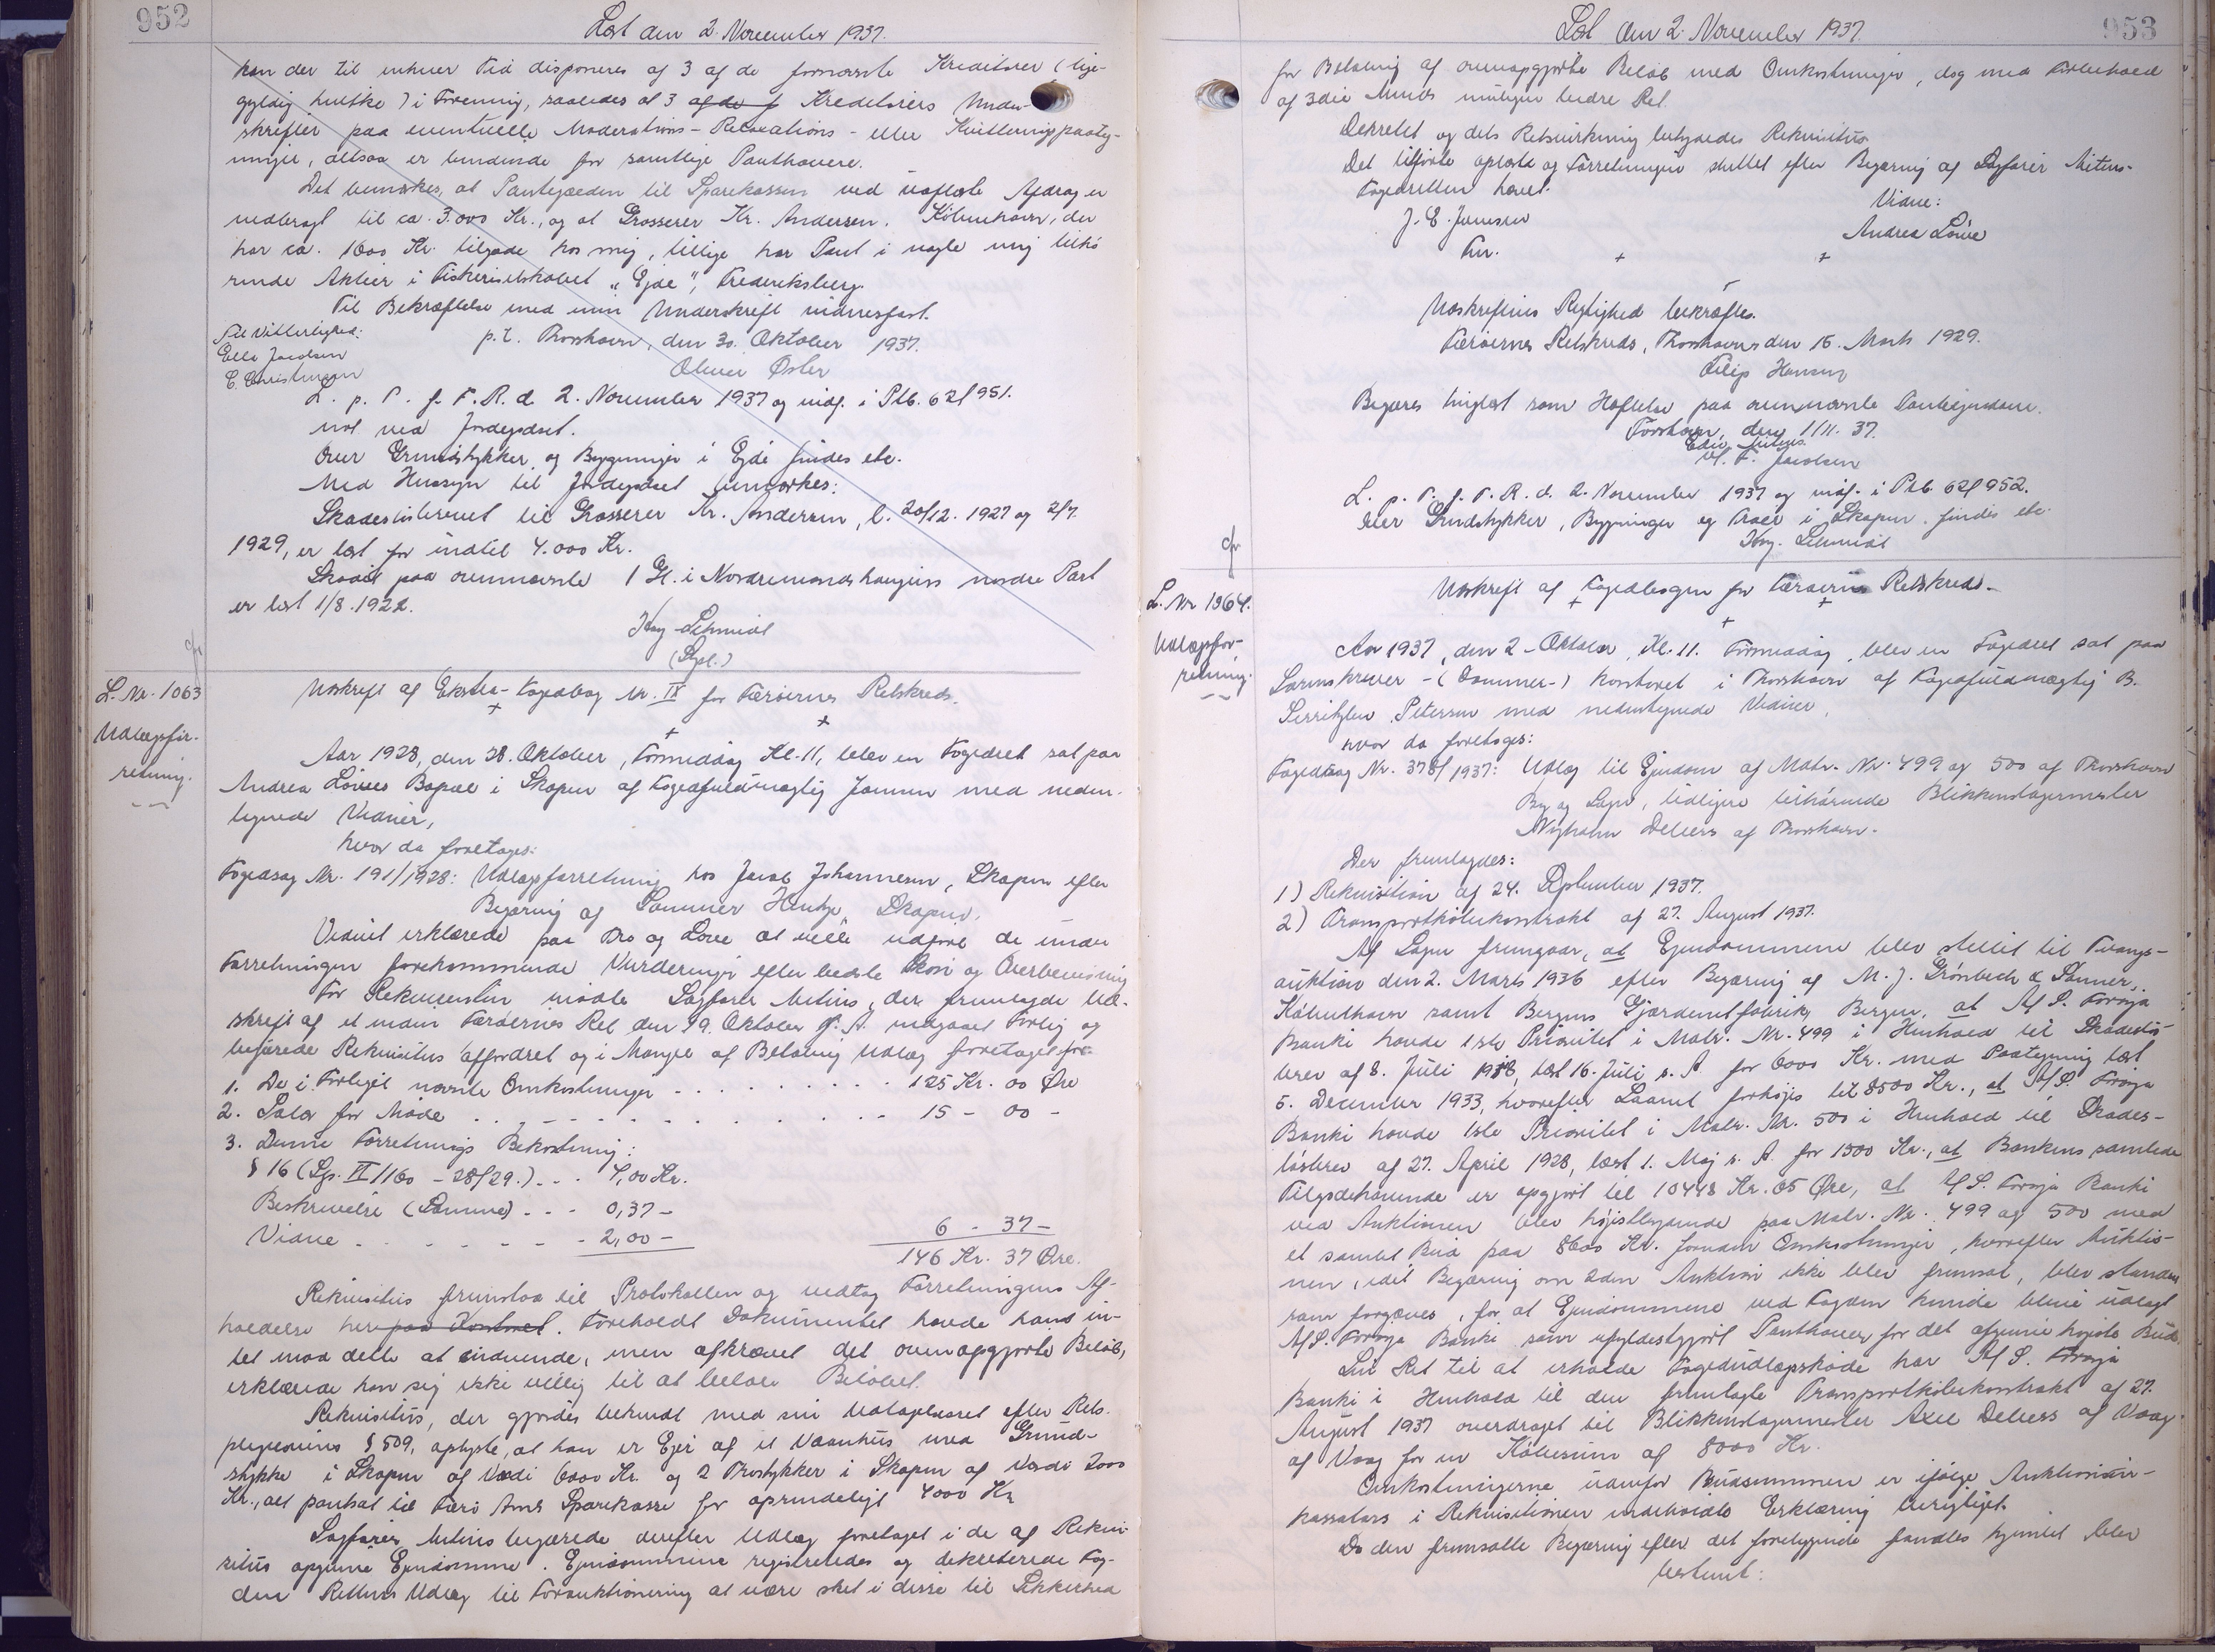 952
Læst den 2. November 1937.
kan der til enhver Tid disponeres af 3 af de fornævnte Kreditorer (lige-
gyldig hvilke) i Forening, saaledes at 3 af de f Kreditorers Under-
skrifter paa eventuelle Moderations- Relaxations- eller Kvitteringspaateg-
ninger, altsaa er bindende for samtlige Panthavere.
Det bemærkes, at Pantegælden til Sparekassen ved Afdrag er
nedbragt til ca. 3.000 Kr., og at Grosserer Kr. Andersen, København, der
har ca. 1600 Kr. tilgode hos mig, tillige har Pant i nogle mig tilhø
rende Aktier i Fiskeriselskabet "Ejde", Frederiksberg.
Til Bekræftelse med min Underskrift vidnesfast.
Til Vitterlighed:
p.t. Thorshavn, den 30. Oktober 1937.
Ella Jacobsen
E. Christensen
L. p. T. f. F. R. d. 2. November 1937 og indf. i Ptb. 62f 951.
ved Jordegodset.
Over Grundstykker og Bygninger i Ejde findes etc.
Med Hensyn til Jordegodset bemærkes:
Skadesløsbrevet til Grosserer Kr. Andersen, l. 20/12. 1927 og 2/7.
1929, er læst for indtil 4.000 Kr.
Skøde paa ovennævnte 1 Gl. i Nordremandshaugens nordre Part
er læst 1/8. 1922.
Kay Schmidt
L. Nr. 1063
Udlægsfor-
retning.
Udskrift af Ekstra-Fogedbog Nr. IX for Færøernes Retskreds.
Aar 1928, den 28. Oktober, Formiddag Kl. 11, blev en Fogedret sat paa
Andrea Løiers Bopæl i Skopun af Fogedfuldmægtig Jensen med neden-
tegnede Vidner,
hvor da foretoges:
Fogedsag Nr. 191/1928: Udlægsforretning hos Jacob Johannesen, Skopun efter
Begæring af Sommer Hentze, Skopun.
Vidnet erklærede paa Tro og Love at ville udføre de under
Forretningen forekommende Vurderinger efter bedste Skøn og Overbevisning
For Rekvirenten mødte Sagfører Mitens, der fremlagde Ud-
skrift af et inden Færøernes Ret den 19. Oktober f. A. indgaaet Forlig og
begærede Rekvisitus affordret og i Mangel af Betaling Udlæg foretaget for
1. De i Forliget nævnte Omkostninger - - - 125 Kr. 00 Øre
2. Salær for Møde - - - 15 - 00 -
3. Denne Forretnings Bekostning:
§ 16 (Lgs. II 1160 - 28/29.) - - 4,00 Kr.
Beskrivelse (Samme) - - - 0,37 -
Vidne - - - - 2,00 -
6 - 37 -
146 Kr. 37 Øre.
Rekvisitus fremstod til Protokollen og vedtog Forretningens Af-
holdelse her paa Kontoret. Foreholdt Dokumentet havde hans in-
tet mod dette at indvende, men afkrævet det ovenopgjorte Beløb,
erklærede han sig ikke villig til at betale Beløbet.
Rekvisitus, der gjordes bekendt med sin Udtalepligt efter Rets-
plejelovens § 509, oplyste, at han er Ejer af et Vaanhus med Grund-
stykke i Skopun af Værdi 6000 Kr. og 2 Trøstykker i Skopun af Værdi 2000
Kr., alt pantsat til Færø Amts Sparekasse for oprindeligt 4000 Kr
Sagfører Mitens begærede derefter Udlæg foretaget i de af Rekvi-
situs opgivne Ejendomme. Ejendommene registreredes og dekreterede Fog-
den Rettens Udlæg til Forauktionering at være sket i disse til Sikkerhed
953
Læst den 2. November 1937.
for Betaling af ovenopgjorte Beløb med Omkostninger, dog med Forbehold
af 3die Mands muligen bedre Ret.
Dekretet og dets Retsvirkning betydedes Rekvisitus
Det tilførte oplæst og Forretningen sluttet efter Begæring af Sagfører Mitens.
Fogedretten hævet.
J. E. Jensen
Vidne:
Fm.
Andrea Løier
Udskriftens Rigtighed bekræftes.
Færøernes Retskreds, Thorshavn den 15. Marts 1929.
Filip Hansen
Begæres tinglæst som Hæftelse paa ovennævnte Panteejendom.
Torshavn, den 1/11. 37.
Edv. Mitens
M. F. Jacobsen
L. p. T. f. F. R. d. 2. November 1937 og indf. i Ptb. 62f 952.
Over Grundstykker, Bygninger og Trøer i Skopun findes etc.
Kay. Schmidt
L. Nr 1064.
Udlægsfor-
retning.
Udskrift af Fogedbogen for Færøernes Retskreds.
Aar 1937, den 2. Oktober, Kl. 11. Formiddag, blev en Fogedret sat paa
Sorenskriver- (Dommer-) kontoret i Thorshavn af Fogedfuldmægtig B.
Serritzlev Petersen med nedentegnede Vidner,
hvor da foretoges:
Fogedsag Nr. 378/1937: Udlæg til Ejendom af Matr. Nr. 499 og 500 af Thorshavn
By og Sogn, tidligere tilhørende Blikkenslagermester
Nyholm Debess af Thorshavn.
Der fremlagdes:
1) Rekvisition af 24. September 1937.
2) Transportkøbekontrakt af 27. August 1937.
Af Sagen fremgaar, at Ejendommene blev stillet til Tvangs-
auktion den 2. Marts 1936 efter Begæring af M. J. Grønbech & Sønner,
København samt Bergens Gjærdenetfabrik, Bergen, at A/S. Føroya
Banki havde 1ste Prioritet i Matr. Nr. 499 i Henhold til Skadesløs-
brev af 8. Juli 1918, læst 16. Juli s. A. for 6000 Kr. med Paategning læst
5. December 1933, hvorefter Laanet forhøjes til 8500 Kr., at A/S. Føroya
Banki havde 1ste Prioritet i Matr. Nr. 500 i Henhold til Skades-
løsbrev af 27. April 1928, læst 1. Maj s. A. for 1500 Kr., at Bankens samlede
Tilgodehavende er opgjort til 10448 Kr. 05 Øre, at A/S. Føroya Banki
ved Auktionen blev højstbydende paa Matr. Nr. 499 og 500 med
et samlet Bud paa 8600 Kr. foruden Omkostninger, hvorefter Auktio-
nen, idet Begæring om 2den Auktion ikke blev fremsat, blev standset
som forgæves, for at Ejendommene ved Fogden kunde blive udlagt
A/S. Føroya Banki som ufyldestgjort Panthaver for det afgivne højeste Bud.
Sin Ret til at erholde Fogedudlægsskøde har A/S. Føroya
Banki i Henhold til den fremlagte Transportkøbekontrakt af 27.
August 1937 overdraget til Blikkenslagermester Axel Debess af Vaag
af Vaag for en Købesum af 8000 Kr.
Omkostningerne udenfor Budsummen er ifølge Auktionsin-
kassators i Rekvisitionen indeholdte Erklæring berigtiget.
Da den fremsatte Begæring efter det foreliggende fandtes hjemlet blev
bestemt: